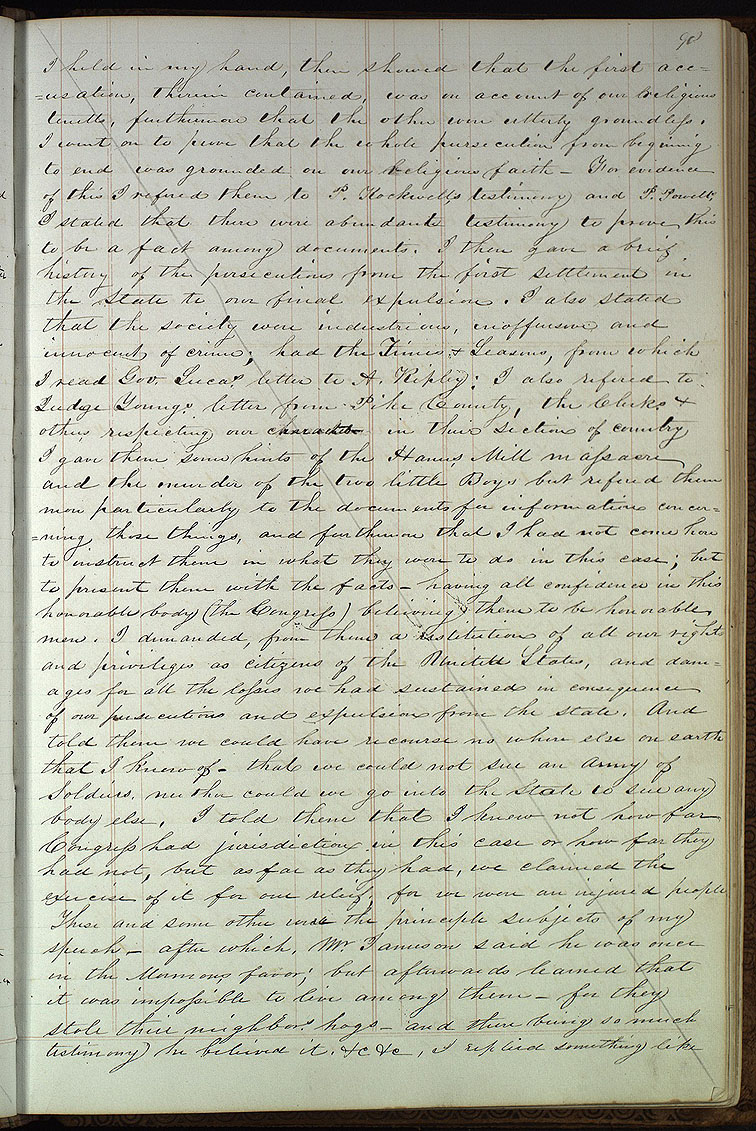 98
I held in my hand, then showed that the first acc=
=usation, therein contained, was on account of our religious
tenetts, furthermore that the other were utterly groundless.
I went on to prove that the whole persecution from begining
to end was grounded on our religious faith – For evidence
of this I refered them to P. Rockwells testimony and P. Powells
I stated that there were abundante testimony to prove this
to be a fact among documents. I then gave a brief
history of the persecutions from the first settlement in
the State to our final expulsion. I also stated
that the society were industrious, inoffensive and
innocent of crime; had the Times & Seasons, from which
I read Gov Lucas letter to A. Ripley; I also refered to
Judge Youngs letter from Pike County, the Clerks &
others respecting our character in this section of country
I gave them some hints of the Hawns Mill massacre
and the murder of the two little Boys but refered them
more particularly to the documents for information concer=
=ning those things, and furthermore that I had not come here
to instruct them in what they were to do in this case; but
to present them with the facts – having all confidence in this
honorable body (the Congress) believing them to be honorable
men. I demanded, from them a restitution of all our rights
and privileges as citizens of the United States, and dam=
ages for all the losses we had sustained in consequence
of our persecutions and expulsion from the state. And
told them we could have recourse no where else on earth
that I know of – that we could not sue an army of
Soldiers, neither could we go into the State to sue any
body else. I told them that I knew not how far
Congress had jurisdiction in this case or how far they
had not, but as far as they had, we claimed the
exercise of it for our relief, for we were an injured people
These and some other were the principle subjects of my
speech – after which, Mr Jameson said he was once
in the Mormons favor; but afterwards learned that
it was impossible to live among them – for they
stole their neighbors hogs – and there being so much
testimony he believed it. &c &c, I replied something like